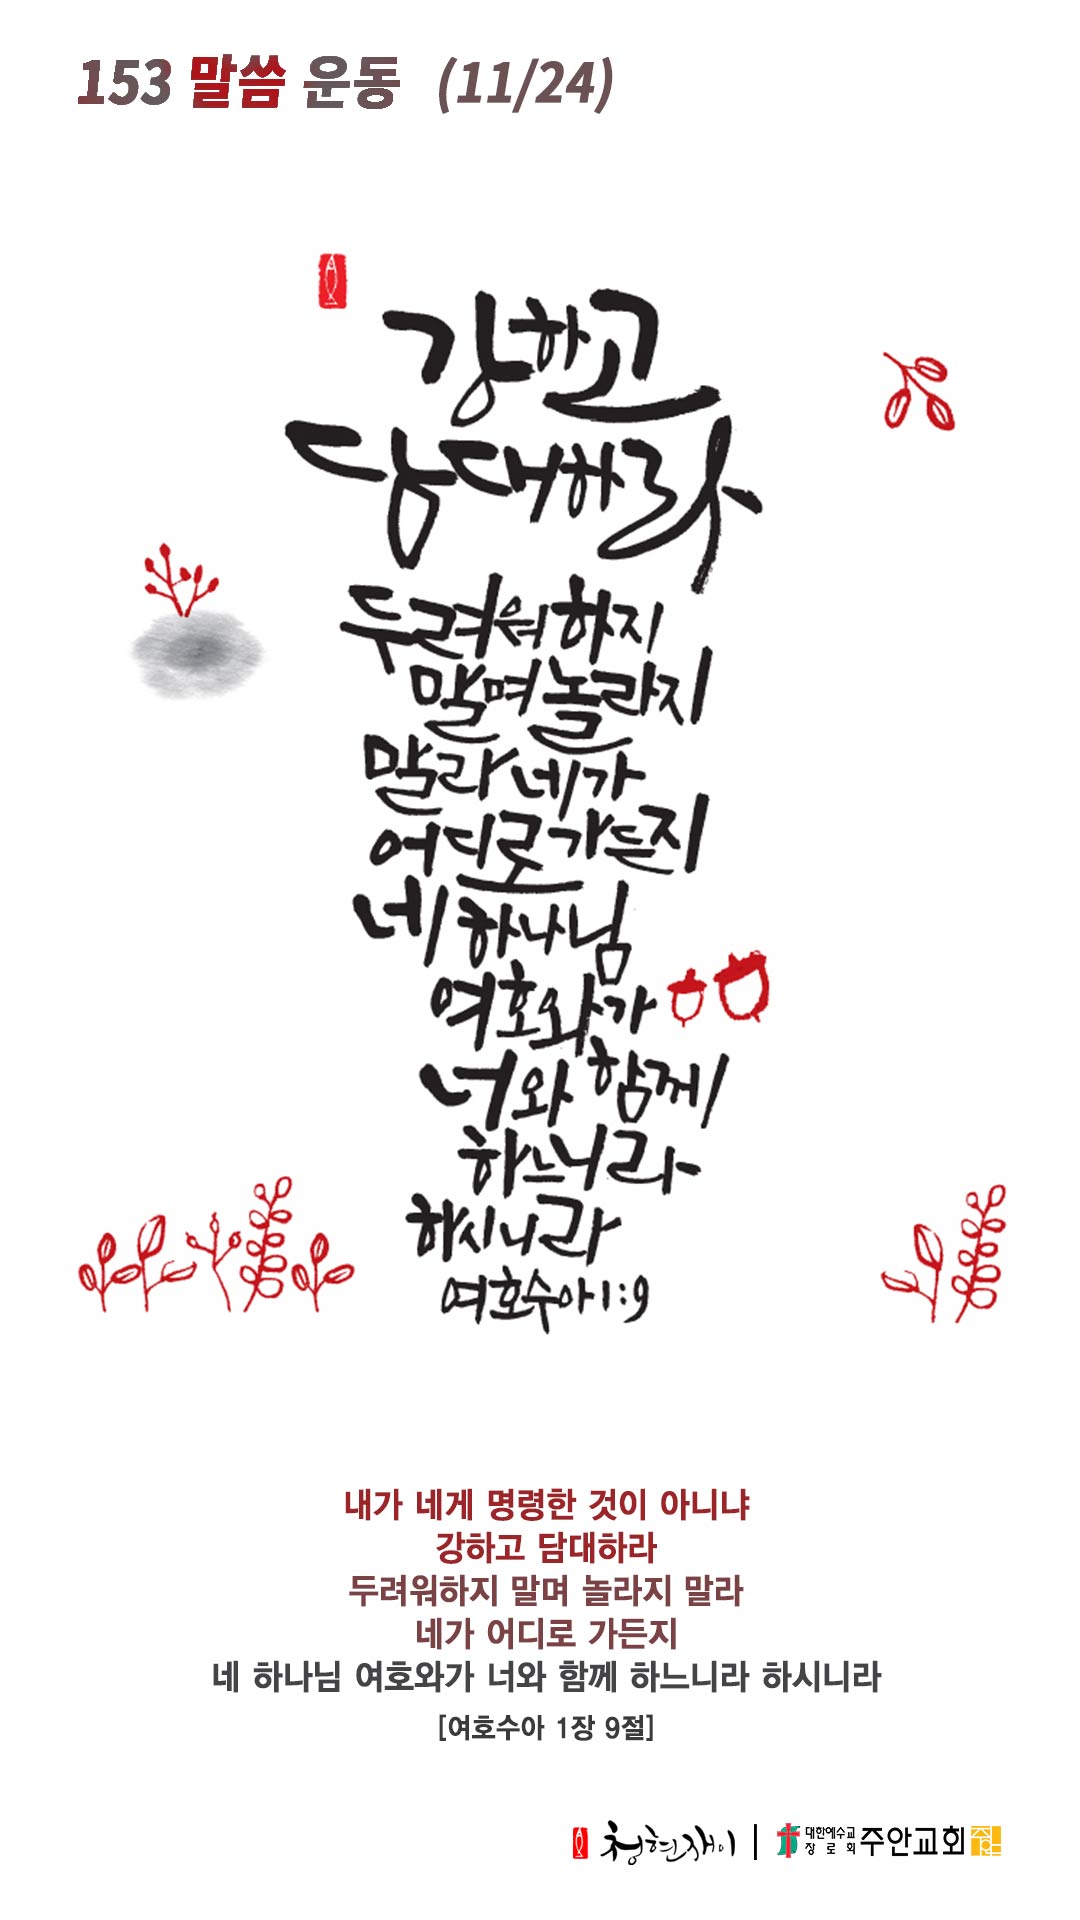 153 말씀 운동 (11/24)
강하고
담대하라
두려워하지
말며 놀라지
말라 네가
어디로 가든지
네 하나님
여호와가
너와 함께
하느니라
하시니라
여호수아 1:9
내가 네게 명령한 것이 아니냐
강하고 담대하라
두려워하지 말며 놀라지 말라
네가 어디로 가든지
네 하나님 여호와가 너와 함께 하느니라 하시니라
[여호수아 1장 9절]
청현재이 | 대한예수교 장로회 주안교회